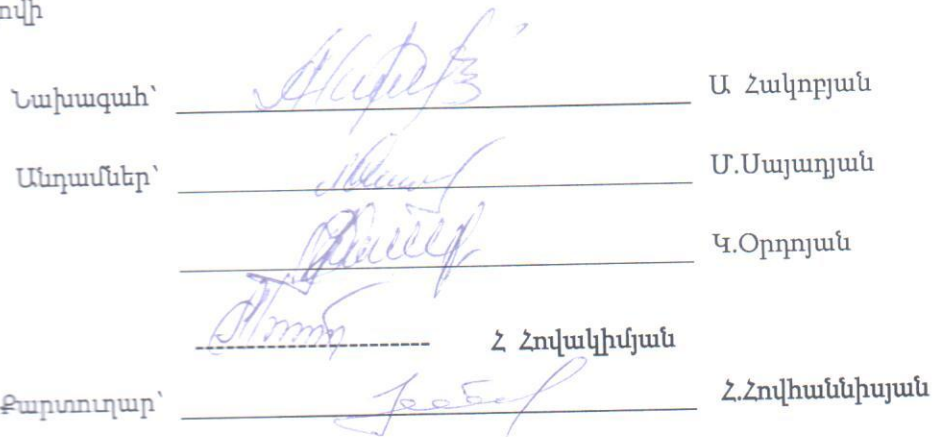 ովի
Նախագահ՝ Ա Հակոբյան
Անդամներ՝ Մ.Սայադյան
Կ.Օրդոյան
Հ Հովակիմյան
Քարտուղար՝ Հ.Հովհաննիսյան